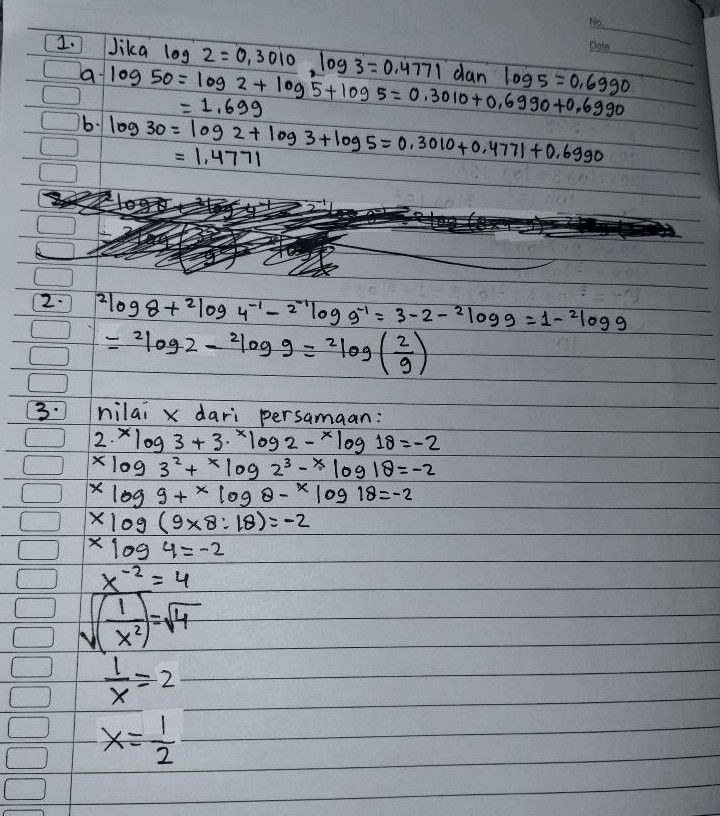 No.
Date
1. Jika log 2 = 0,3010, log 3 = 0.4771 dan log 5 = 0,6990
a. log 50 = log 2 + log 5 + log 5 = 0.3010 + 0,6990 + 0,6990
= 1.699
b. log 30 = log 2 + log 3 + log 5 = 0.3010 + 0.4771 + 0.6990
= 1,4771
2. ²log 8 + ²log 4⁻¹ - 2⁻¹log 9⁻¹ = 3 - 2 - ²log 9 = 1 - ²log 9
= ²log 2 - ²log 9 = ²log (2/9)
3. nilai x dari persamaan:
2. ˣlog 3 + 3. ˣlog 2 - ˣlog 18 = -2
ˣlog 3² + ˣlog 2³ - ˣlog 18 = -2
ˣlog 9 + ˣlog 8 - ˣlog 18 = -2
ˣlog (9 x 8 : 18) = -2
ˣlog 4 = -2
x⁻² = 4
√(1/x²) = √4
1/x = 2
x = 1/2